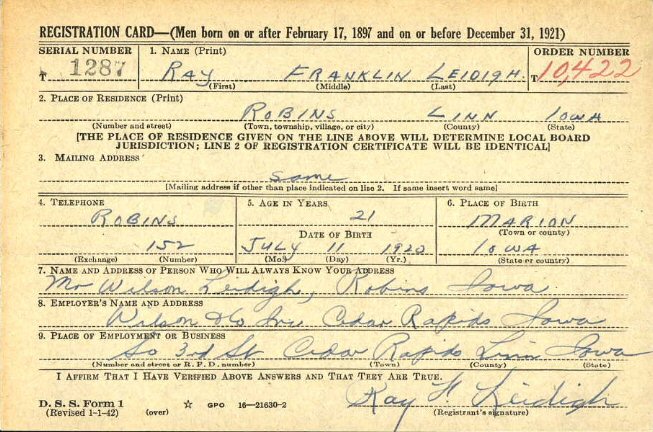 REGISTRATION CARD—(Men born on or after February 17, 1897 and on or before December 31, 1921)
SERIAL NUMBER 1. NAME (Print) ORDER NUMBER
T 1287 RAY FRANKLIN LEIDIGH T10,422
(First) (Middle) (Last)
2. PLACE OF RESIDENCE (Print)
ROBINS LINN IOWA
(Number and street) (Town, township, village, or city) (County) (State)
[THE PLACE OF RESIDENCE GIVEN ON THE LINE ABOVE WILL DETERMINE LOCAL BOARD
JURISDICTION; LINE 2 OF REGISTRATION CERTIFICATE WILL BE IDENTICAL]
3. MAILING ADDRESS
Same
[Mailing address if other than place indicated on line 2. If same insert word same]
4. TELEPHONE 5. AGE IN YEARS 6. PLACE OF BIRTH
ROBINS 21 MARION
DATE OF BIRTH (Town or county)
152 JULY 11 1920 IOWA
(Exchange) (Number) (Mo.) (Day) (Yr.) (State or country)
7. NAME AND ADDRESS OF PERSON WHO WILL ALWAYS KNOW YOUR ADDRESS
Mr Wilson Leidigh, Robins Iowa
8. EMPLOYER'S NAME AND ADDRESS
Wilson & Co Inc Cedar Rapids Iowa
9. PLACE OF EMPLOYMENT OR BUSINESS
So 3rd St Cedar Rapids Linn Iowa
(Number and street or R. F. D. number) (Town) (County) (State)
I AFFIRM THAT I HAVE VERIFIED ABOVE ANSWERS AND THAT THEY ARE TRUE.
Ray F Leidigh
D. S. S. Form 1
(Revised 1-1-42) (over) ☆ GPO 16—21630-2 (Registrant's signature)